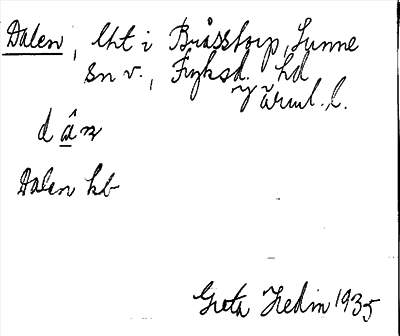 Dalen, lht i Bråsstorp, Sunne
sn v., Fryksd. hd
Värml. l.
dân
Dalen kb
Greta Hedin 1935